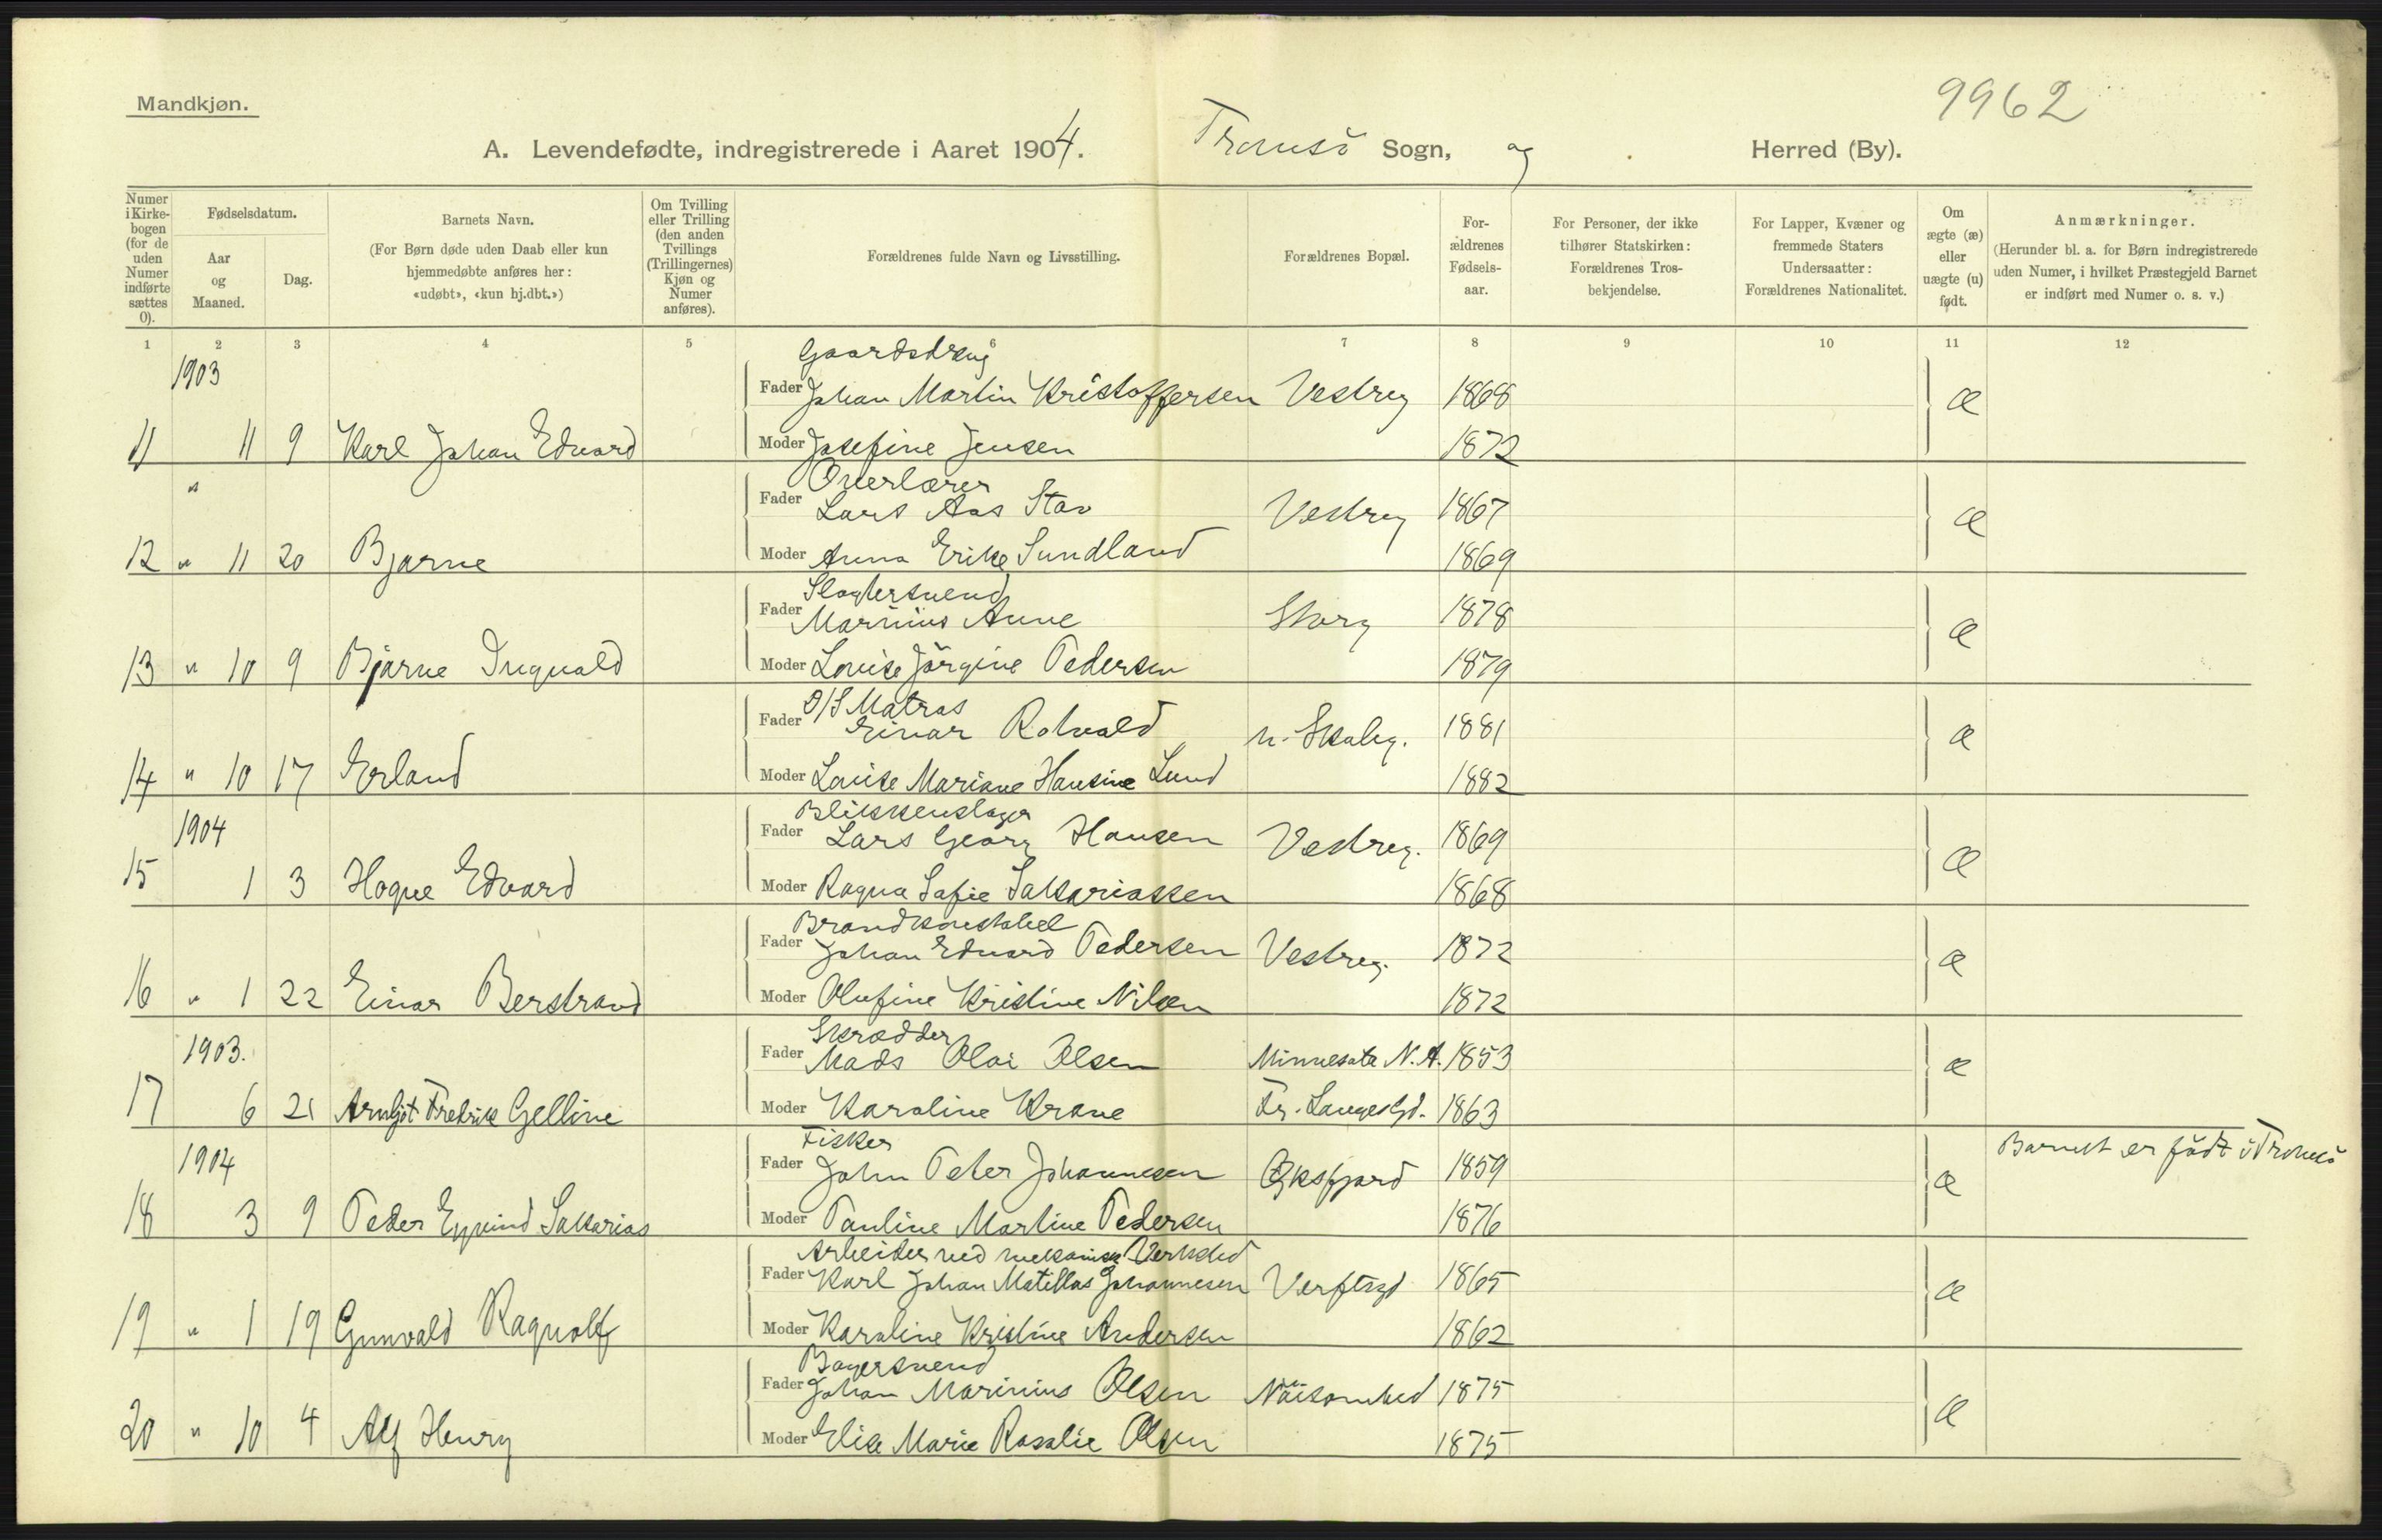 9962
Mandkjøn.
A. Levendefødte, indregistrerede i Aaret 1904. Tromsö Sogn, og Herred (By).
Numer i Kirkebogen (for de uden Numer indførte sættes 0).
Fødselsdatum.
Aar og Maaned.
Dag.
Barnets Navn.
(For Børn døde uden Daab eller kun hjemmedøbte anføres her: «udøbt», «kun hj.dbt.»)
Om Tvilling eller Trilling (den anden Tvillings (Trillingernes) Kjøn og Numer anføres).
Forældrenes fulde Navn og Livsstilling.
Forældrenes Bopæl.
Forældrenes Fødselsaar.
For Personer, der ikke tilhører Statskirken: Forældrenes Trosbekjendelse.
For Lapper, Kvæner og fremmede Staters Undersaatter: Forældrenes Nationalitet.
Om ægte (æ) eller uægte (u) født.
Anmærkninger.
(Herunder bl. a. for Børn indregistrerede uden Numer, i hvilket Præstegjeld Barnet er indført med Numer o. s. v.)
1 2 3 4 5 6 7 8 9 10 11 12
Gaardsdreng
1903 Fader Johan Martin Kristoffersen Vestreg 1868 æ
11 11 9 Karl Johan Edvard Moder Josefine Jensen 1872
Overlærer
" Fader Lars Aas Stav Vestreg 1867 æ
12 " 11 20 Bjarne Moder Anna Erike Sundland 1869
Slagtersvend
Fader Marinius Aune Storg 1878 æ
13 " 10 9 Bjarne Ingvald Moder Louise Jörgine Pedersen 1879
D/S Matros
Fader Einar Rotvald n. Skoleg. 1881 æ
14 " 10 17 Erland Moder Louise Mariane Hansine Lund 1882
Blikkenslager
1904 Fader Lars Georg Hansen Vestreg. 1869 æ
15 1 3 Hogne Edvard Moder Ragna Sofie Sakariassen 1868
Brandkonstabel
Fader Johan Edvard Pedersen Vestreg. 1872 æ
16 " 1 22 Einar Berstrand Moder Olufine Kristine Nilsen 1872
Skrædder
1903. Fader Mads Olai Olsen Minnesota N. A. 1853 æ
17 6 21 Arnljot Fredrik Gelline Moder Karoline Krane Fr. Langes Gd. 1863
Fisker
1904 Fader John Peter Johannesen Öksfjord 1859 æ Barnet er födt i Tromsö
18 3 9 Peder Eyvind Sakarias Moder Pauline Martine Pedersen 1876
Arbeider ved mekanisk Verksted
Fader Karl Johan Matillas Johannesen Verftsgd 1865 æ
19 " 1 19 Gunvald Ragnolf Moder Karoline Kristine Andersen 1862
Bagersvend
Fader Johan Marinius Olsen Nöisomhed 1875 æ
20 " 10 4 Alf Henry Moder Elise Marie Rosalie Olsen 1875